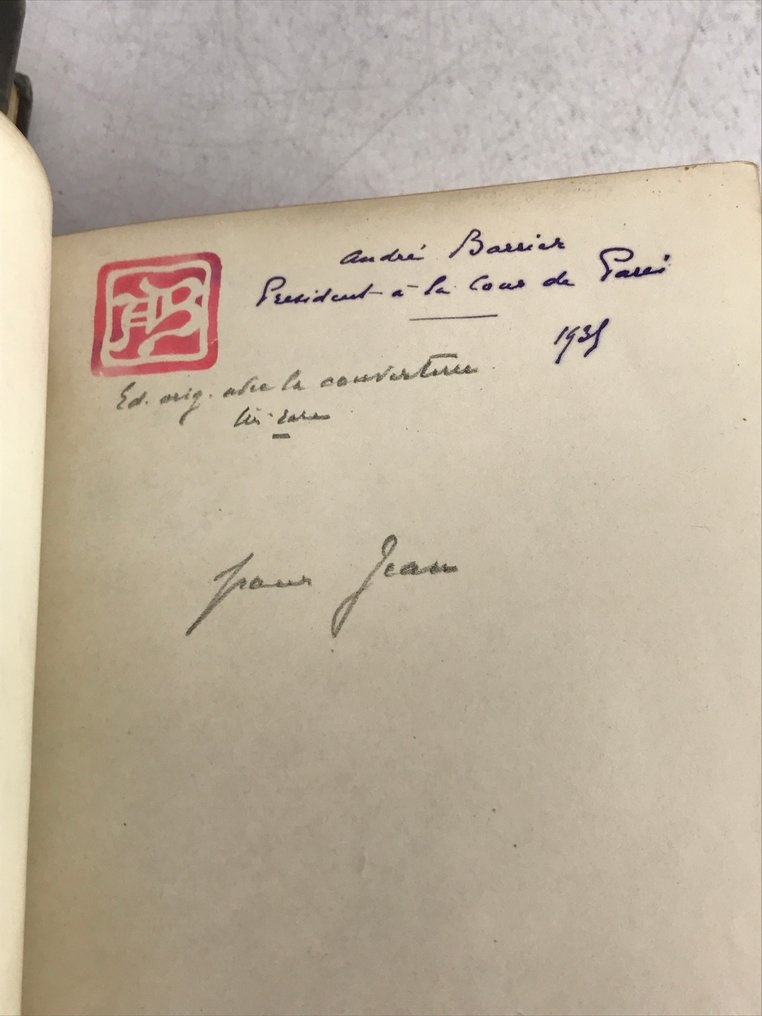 AB
André Barrier
Président à la Cour de Paris
1935
Ed. orig. avec la couverture
très rare
pour Jean